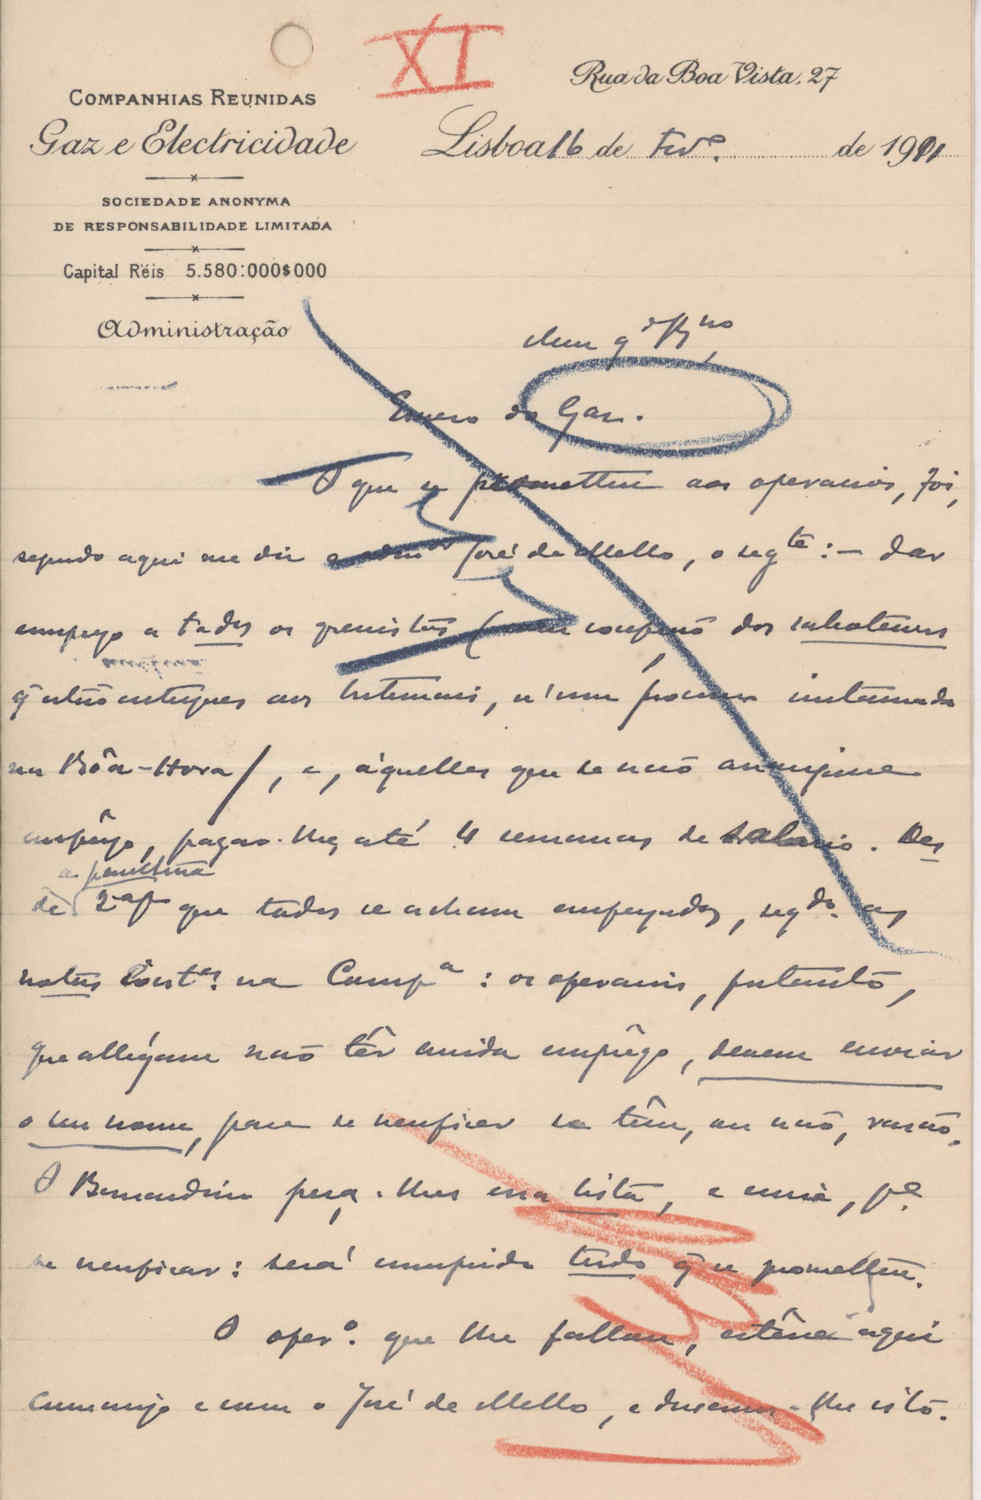 XI
Rua da Boa Vista, 27
COMPANHIAS REUNIDAS
Gaz e Electricidade
Lisboa 16 de Fevº. de 1911
SOCIEDADE ANONYMA
DE RESPONSABILIDADE LIMITADA
Capital Réis 5.580:000$000
Administração
Meu
do Gaz.
O que se prometteu aos operarios, foi,
segundo aqui me diz José de Mello, o segte: — dar
emprego a todos os grevistas ( excepção dos saboteurs
q estão entregues aos tribunais, n'um processo instaurado
na Bôa-Hora), e, áquelles que se não arranjasse
emprêgo, pagar-lhes até 4 semanas de salario. Des
a penultima
de 2ª fª que todos se acham empregados, segdo. as
notas na Compª: os operarios, portanto,
que allégam não têr ainda emprêgo, devem enviar
o seu nome, para se verificar se têm, ou não, razão.
O Bernardino peça-lhes essa lista, e envie, pª.
se verificar: será cumprido tudo q se prometteu.
O operº. que lhe fallou, estêve aqui
commigo e com o José de Mello, e dissemos-lhe isto.